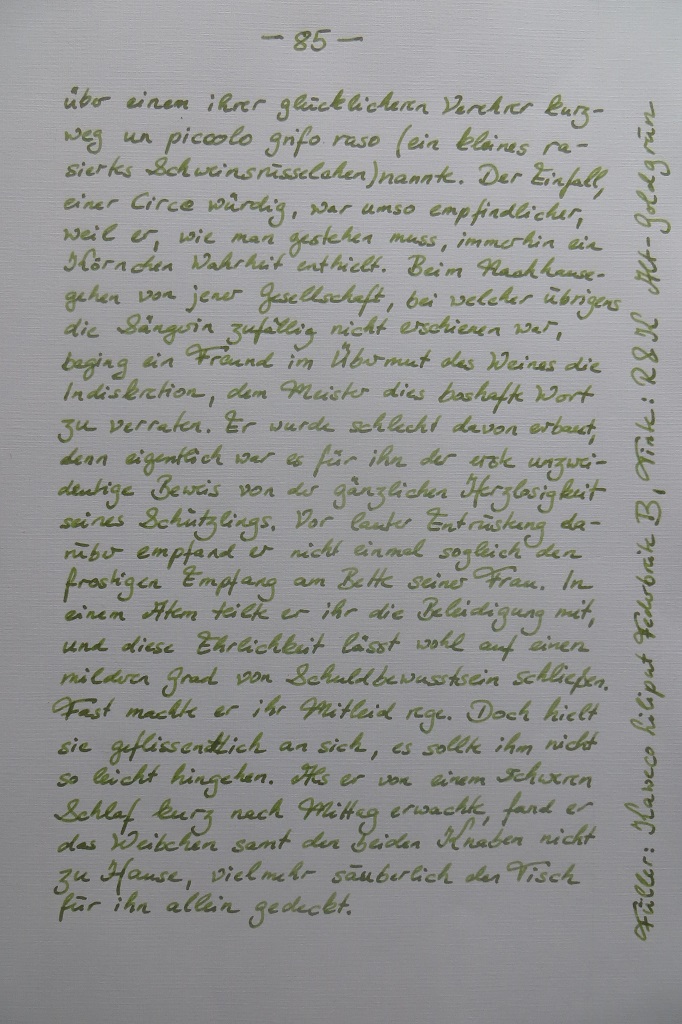 — 85 —
über einem ihrer glücklicheren Verehrer kurz-
weg un piccolo grifo raso (ein kleines ra-
siertes Schweinsrüsselchen) nannte. Der Einfall,
einer Circe würdig, war umso empfindlicher,
weil er, wie man gestehen muss, immerhin ein
Körnchen Wahrheit enthielt. Beim Nachhause-
gehen von jener Gesellschaft, bei welcher übrigens
die Sängerin zufällig nicht erschienen war,
beging ein Freund im Übermut des Weines die
Indiskretion, dem Meister dies boshafte Wort
zu verraten. Er wurde schlecht davon erbaut,
denn eigentlich war es für ihn der erste unzwei-
deutige Beweis von der gänzlichen Herzlosigkeit
seines Schützlings. Vor lauter Entrüstung da-
rüber empfand er nicht einmal sogleich den
frostigen Empfang am Bette seiner Frau. In
einem Atem teilte er ihr die Beleidigung mit,
und diese Ehrlichkeit lässt wohl auf einen
milderen Grad von Schuldbewusstsein schließen.
Fast machte er ihr Mitleid rege. Doch hielt
sie geflissentlich an sich, es sollte ihm nicht
so leicht hingehen. Als er von einem schweren
Schlaf kurz nach Mittag erwachte, fand er
das Weibchen samt den beiden Knaben nicht
zu Hause, vielmehr säuberlich den Tisch
für ihn allein gedeckt.
Füller: Kaweco Liliput Federbreite B, Tinte: R&K Alt-Goldgrün